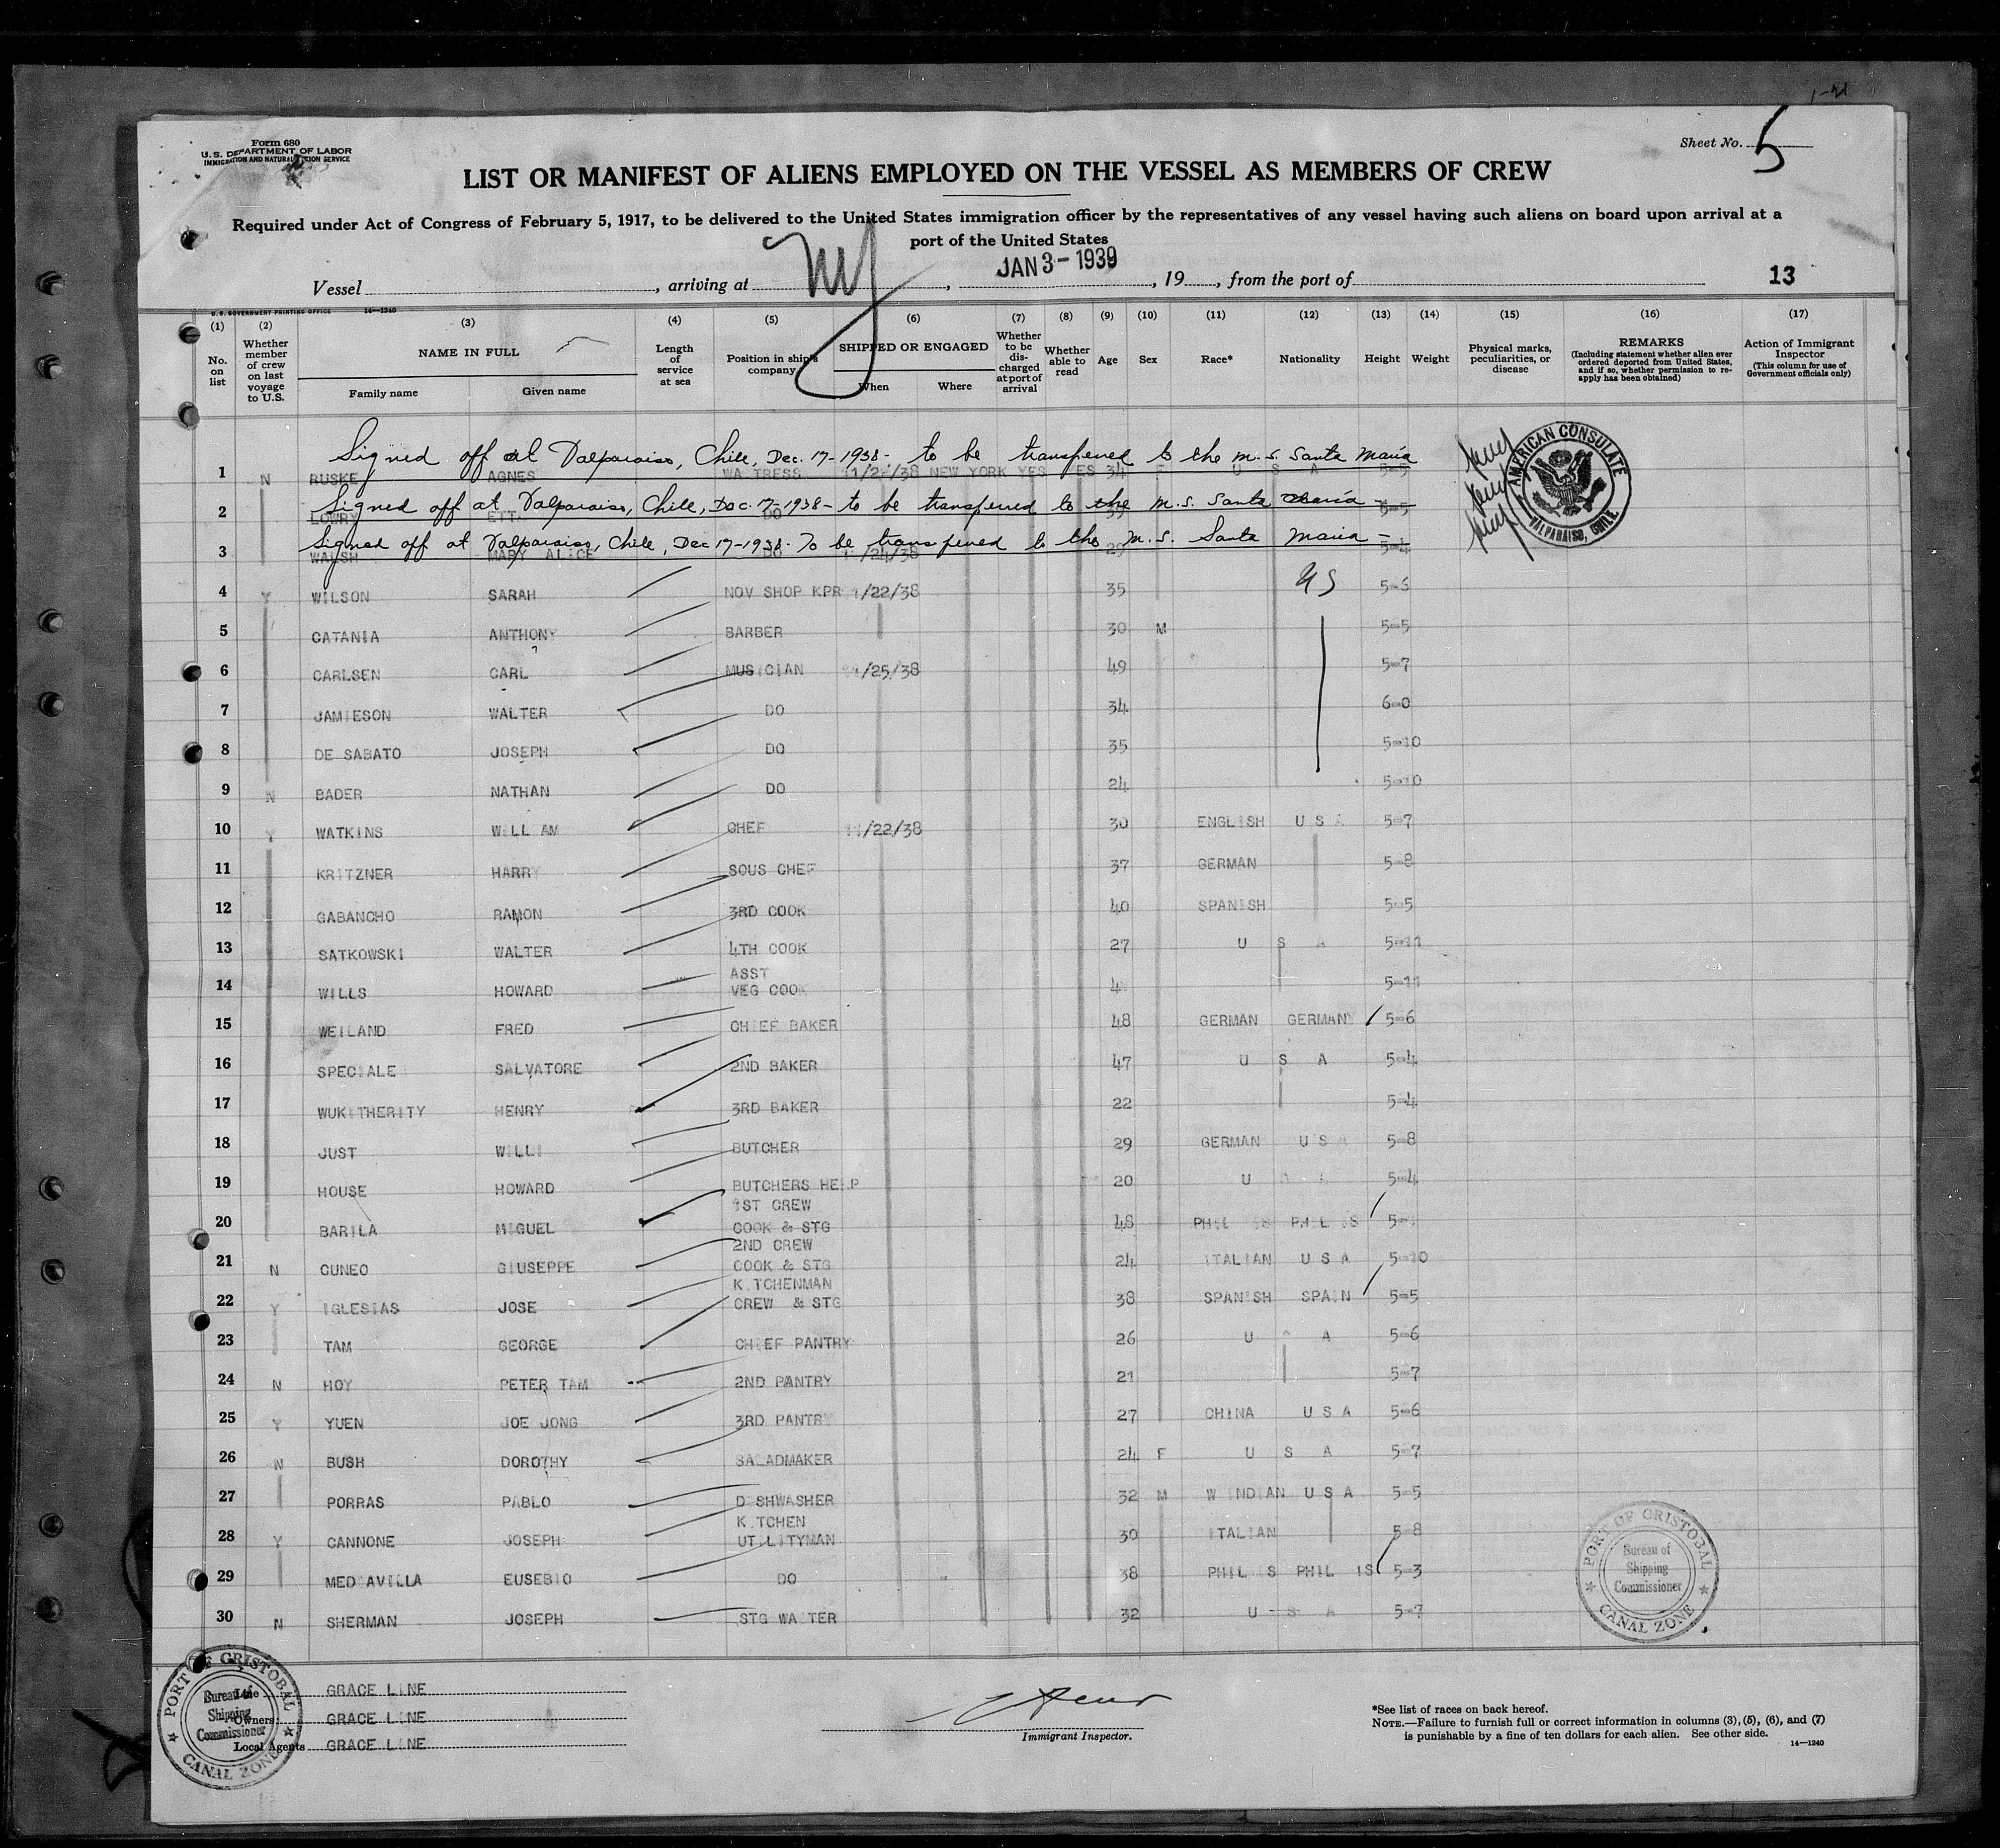 Form 680
U.S. DEPARTMENT OF LABOR
IMMIGRATION AND NATURALIZATION SERVICE
Sheet No. 5
LIST OR MANIFEST OF ALIENS EMPLOYED ON THE VESSEL AS MEMBERS OF CREW
Required under Act of Congress of February 5, 1917, to be delivered to the United States immigration officer by the representatives of any vessel having such aliens on board upon arrival at a
port of the United States
Vessel , arriving at NY , JAN 3 - 1939 , 19 , from the port of 13
U.S. GOVERNMENT PRINTING OFFICE 14—1240
(1) (2) (3) (4) (5) (6) (7) (8) (9) (10) (11) (12) (13) (14) (15) (16) (17)
No. on list
Whether member of crew on last voyage to U.S.
NAME IN FULL
Family name Given name
Length of service at sea
Position in ship's company
SHIPPED OR ENGAGED
When Where
Whether to be discharged at port of arrival
Whether able to read
Age Sex Race* Nationality Height Weight
Physical marks, peculiarities, or disease
REMARKS
(Including statement whether alien ever ordered deported from United States, and if so, whether permission to reapply has been obtained)
Action of Immigrant Inspector
(This column for use of Government officials only)
Signed off at Valparaiso, Chile, Dec. 17-1938- to be transferred to the m.s. Santa Maria
1 N RUSKE AGNES WAITRESS 11/21/38 NEW YORK YES YES 34 F U S A 5-5
Signed off at Valparaiso, Chile, Dec. 17-1938- to be transferred to the m.s. Santa Maria -
2 LOWRY DO 5-5
Signed off at Valparaiso, Chile, Dec 17-1938. To be transferred to the m.s. Santa Maria -
3 WALSH MARY ALICE DO /24/38 5-4
AMERICAN CONSULATE
VALPARAISO, CHILE.
4 Y WILSON SARAH NOV SHOP KPR 1/22/38 35 US 5-6
5 CATANIA ANTHONY BARBER 30 M 5-5
6 CARLSEN CARL MUSICIAN 11/25/38 49 5-7
7 JAMIESON WALTER DO 34 6-0
8 DE SABATO JOSEPH DO 35 5-10
9 N BADER NATHAN DO 24 5-10
10 Y WATKINS WILLIAM CHEF 11/22/38 30 ENGLISH U S A 5-7
11 KRITZNER HARRY SOUS CHEF 37 GERMAN 5-8
12 GABANCHO RAMON 3RD COOK 40 SPANISH 5-5
13 SATKOWSKI WALTER 4TH COOK 27 U S A 5-11
14 WILLS HOWARD ASST VEG COOK 5-11
15 WEILAND FRED CHIEF BAKER 48 GERMAN GERMANY 5-6
16 SPECIALE SALVATORE 2ND BAKER 47 U S A 5-4
17 WUKITHERITY HENRY 3RD BAKER 22 5-4
18 JUST WILLI BUTCHER 29 GERMAN U S A 5-8
19 HOUSE HOWARD BUTCHERS HELP 20 U S A 5-4
20 BARILA MIGUEL 1ST CREW COOK & STG 48 PHIL IS PHIL IS
21 N CUNEO GIUSEPPE 2ND CREW COOK & STG 24 ITALIAN U S A 5-10
22 Y IGLESIAS JOSE KITCHENMAN CREW & STG 38 SPANISH SPAIN 5-5
23 TAM GEORGE CHIEF PANTRY 26 U S A 5-6
24 N HOY PETER TAM 2ND PANTRY 21 5-7
25 Y YUEN JOE JONG 3RD PANTRY 27 CHINA U S A 5-6
26 N BUSH DOROTHY SALADMAKER 24 F U S A 5-7
27 PORRAS PABLO DISHWASHER 32 M W INDIAN U S A 5-5
28 Y CANNONE JOSEPH KITCHEN UTILITYMAN 30 ITALIAN 5-8
29 MEDIAVILLA EUSEBIO DO 38 PHIL IS PHIL IS 5-3
30 N SHERMAN JOSEPH STG WAITER 32 U S A 5-7
PORT OF CRISTOBAL
Bureau of Shipping Commissioner
CANAL ZONE
PORT OF CRISTOBAL
Bureau of Shipping Commissioner
CANAL ZONE
Line GRACE LINE
Owners GRACE LINE
Local Agents GRACE LINE
Immigrant Inspector.
*See list of races on back hereof.
NOTE.—Failure to furnish full or correct information in columns (3), (5), (6), and (7)
is punishable by a fine of ten dollars for each alien. See other side.
14—1240